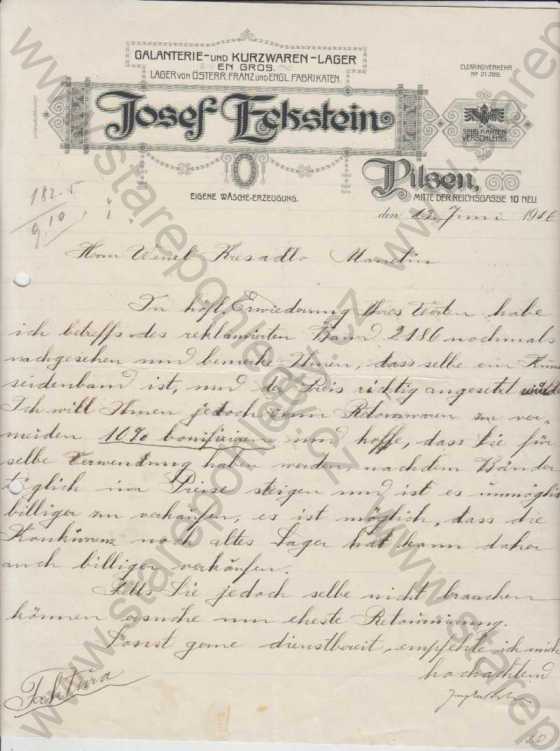 GALANTERIE-UND KURZWAREN-LAGER
EN GROS.
LAGER VON ÖSTERR. FRANZ. UND ENGL. FABRIKATEN.
CLEARINGVERKEHR
Josef Eckstein
Pilsen,
EIGENE WÄSCHE-ERZEUGUNG.
MITTE DER REICHSGASSE 10 NEU.
den 12. Juni 1916
182·5
9·10
Herrn Wenzel Kresadlo Manetin
In höfl. Erwiederung Ihres Werten habe
ich betreffs des reklamirten Band 2186 nochmals
nachgesehen und bemerke Ihnen, dass selbe ein Kunst
seidenband ist, und der Preis richtig angesetzt wurde
Ich will Ihnen jedoch um Retourwaren zu ver-
meiden 10% bonifiziren und hoffe, dass Sie für
selbe Verwendung haben werden, nachdem Bänder
täglich im Preise steigen und ist es unmöglich
billiger zu verkaufen, es ist möglich, dass die
Konkurenz noch altes Lager hat kann daher
auch billiger verkaufen.
Falls Sie jedoch selbe nicht brauchen
können ersuche um eheste Retournirung.
Sonst gerne dienstbereit, empfehle ich mich
hochachtend
Faktura
www.starepohlednice.cz